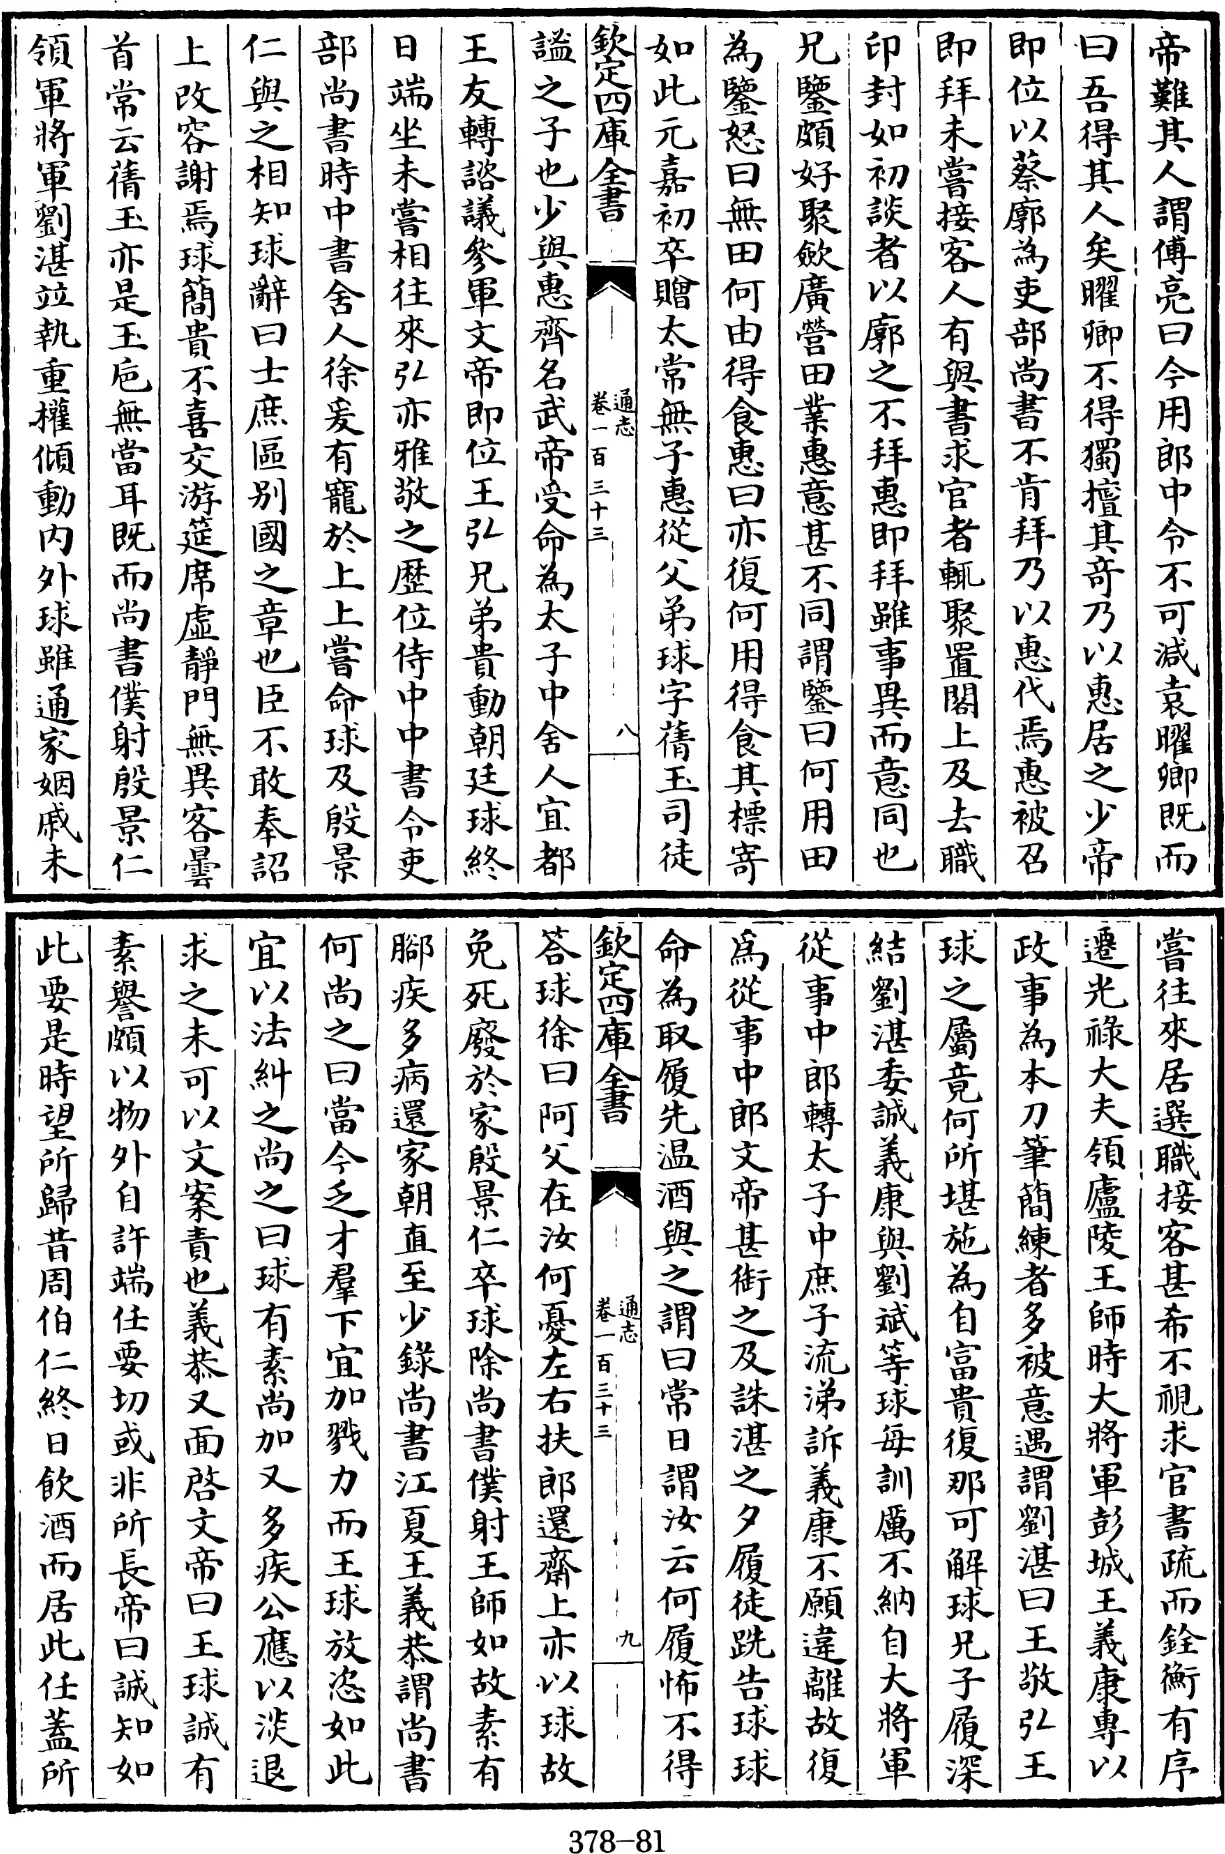 帝難其人謂傅亮曰今用郎中令不可減袁曜卿既而
曰吾得其人矣曜卿不得獨擅其奇乃以惠居之少帝
即位以蔡廓為吏部尚書不肯拜乃以惠代焉惠被召
即拜未嘗接客人有與書求官者輒聚置閣上及去職
印封如初談者以廓之不拜惠即拜雖事異而意同也
兄鑒頗好聚歛廣營田業惠意甚不同謂鑒曰何用田
為鑒怒曰無田何由得食惠曰亦復何用得食其標寄
如此元嘉初卒贈太常無子惠從父弟球字蒨玉司徒
欽定四庫全書
通志
卷一百三十三
八
謐之子也少與惠齊名武帝受命為太子中舍人宜都
王友轉諮議參軍文帝即位王弘兄弟貴動朝廷球終
日端坐未嘗相往來弘亦雅敬之歷位侍中中書令吏
部尚書時中書舍人徐爰有寵於上上嘗命球及殷景
仁與之相知球辭曰士庶區别國之章也臣不敢奉詔
上改容謝焉球簡貴不喜交游筵席虛靜門無異客曇
首常云蒨玉亦是玉巵無當耳既而尚書僕射殷景仁
領軍將軍劉湛竝執重權傾動内外球雖通家姻戚未
嘗往來居選職接客甚希不視求官書疏而銓衡有序
遷光祿大夫領廬陵王師時大將軍彭城王義康專以
政事為本刀筆簡練者多被意遇謂劉湛曰王敬弘王
球之屬竟何所堪施為自富貴復那可解球兄子履深
結劉湛委誠義康與劉斌等球每訓厲不納自大將軍
從事中郎轉太子中庶子流涕訴義康不願違離故復
為從事中郎文帝甚銜之及誅湛之夕履徒跣告球球
命為取履先温酒與之謂曰常日謂汝云何履怖不得
欽定四庫全書
通志
卷一百三十三
九
荅球徐曰阿父在汝何憂左右扶郎還齋上亦以球故
免死廢於家殷景仁卒球除尚書僕射王師如故素有
腳疾多病還家朝直至少錄尚書江夏王義恭謂尚書
何尚之曰當今乏才羣下宜加戮力而王球放恣如此
宜以法糾之尚之曰球有素尚加又多疾公應以淡退
求之未可以文案責也義恭又面啓文帝曰王球誠有
素譽頗以物外自許端任要切或非所長帝曰誠知如
此要是時望所歸昔周伯仁終日飲酒而居此任蓋所
378-81